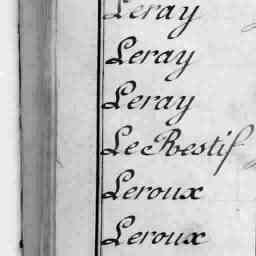 Leray
Leray
Leray
Le Restif
Leroux
Leroux